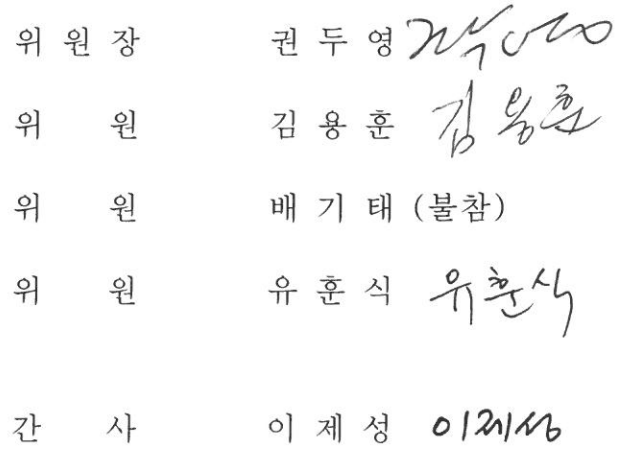 위 원 장 권 두 영
위 원 김 용 훈 김용훈
위 원 배 기 태 (불참)
위 원 유 훈 식 유훈식
간 사 이 제 성 이제성